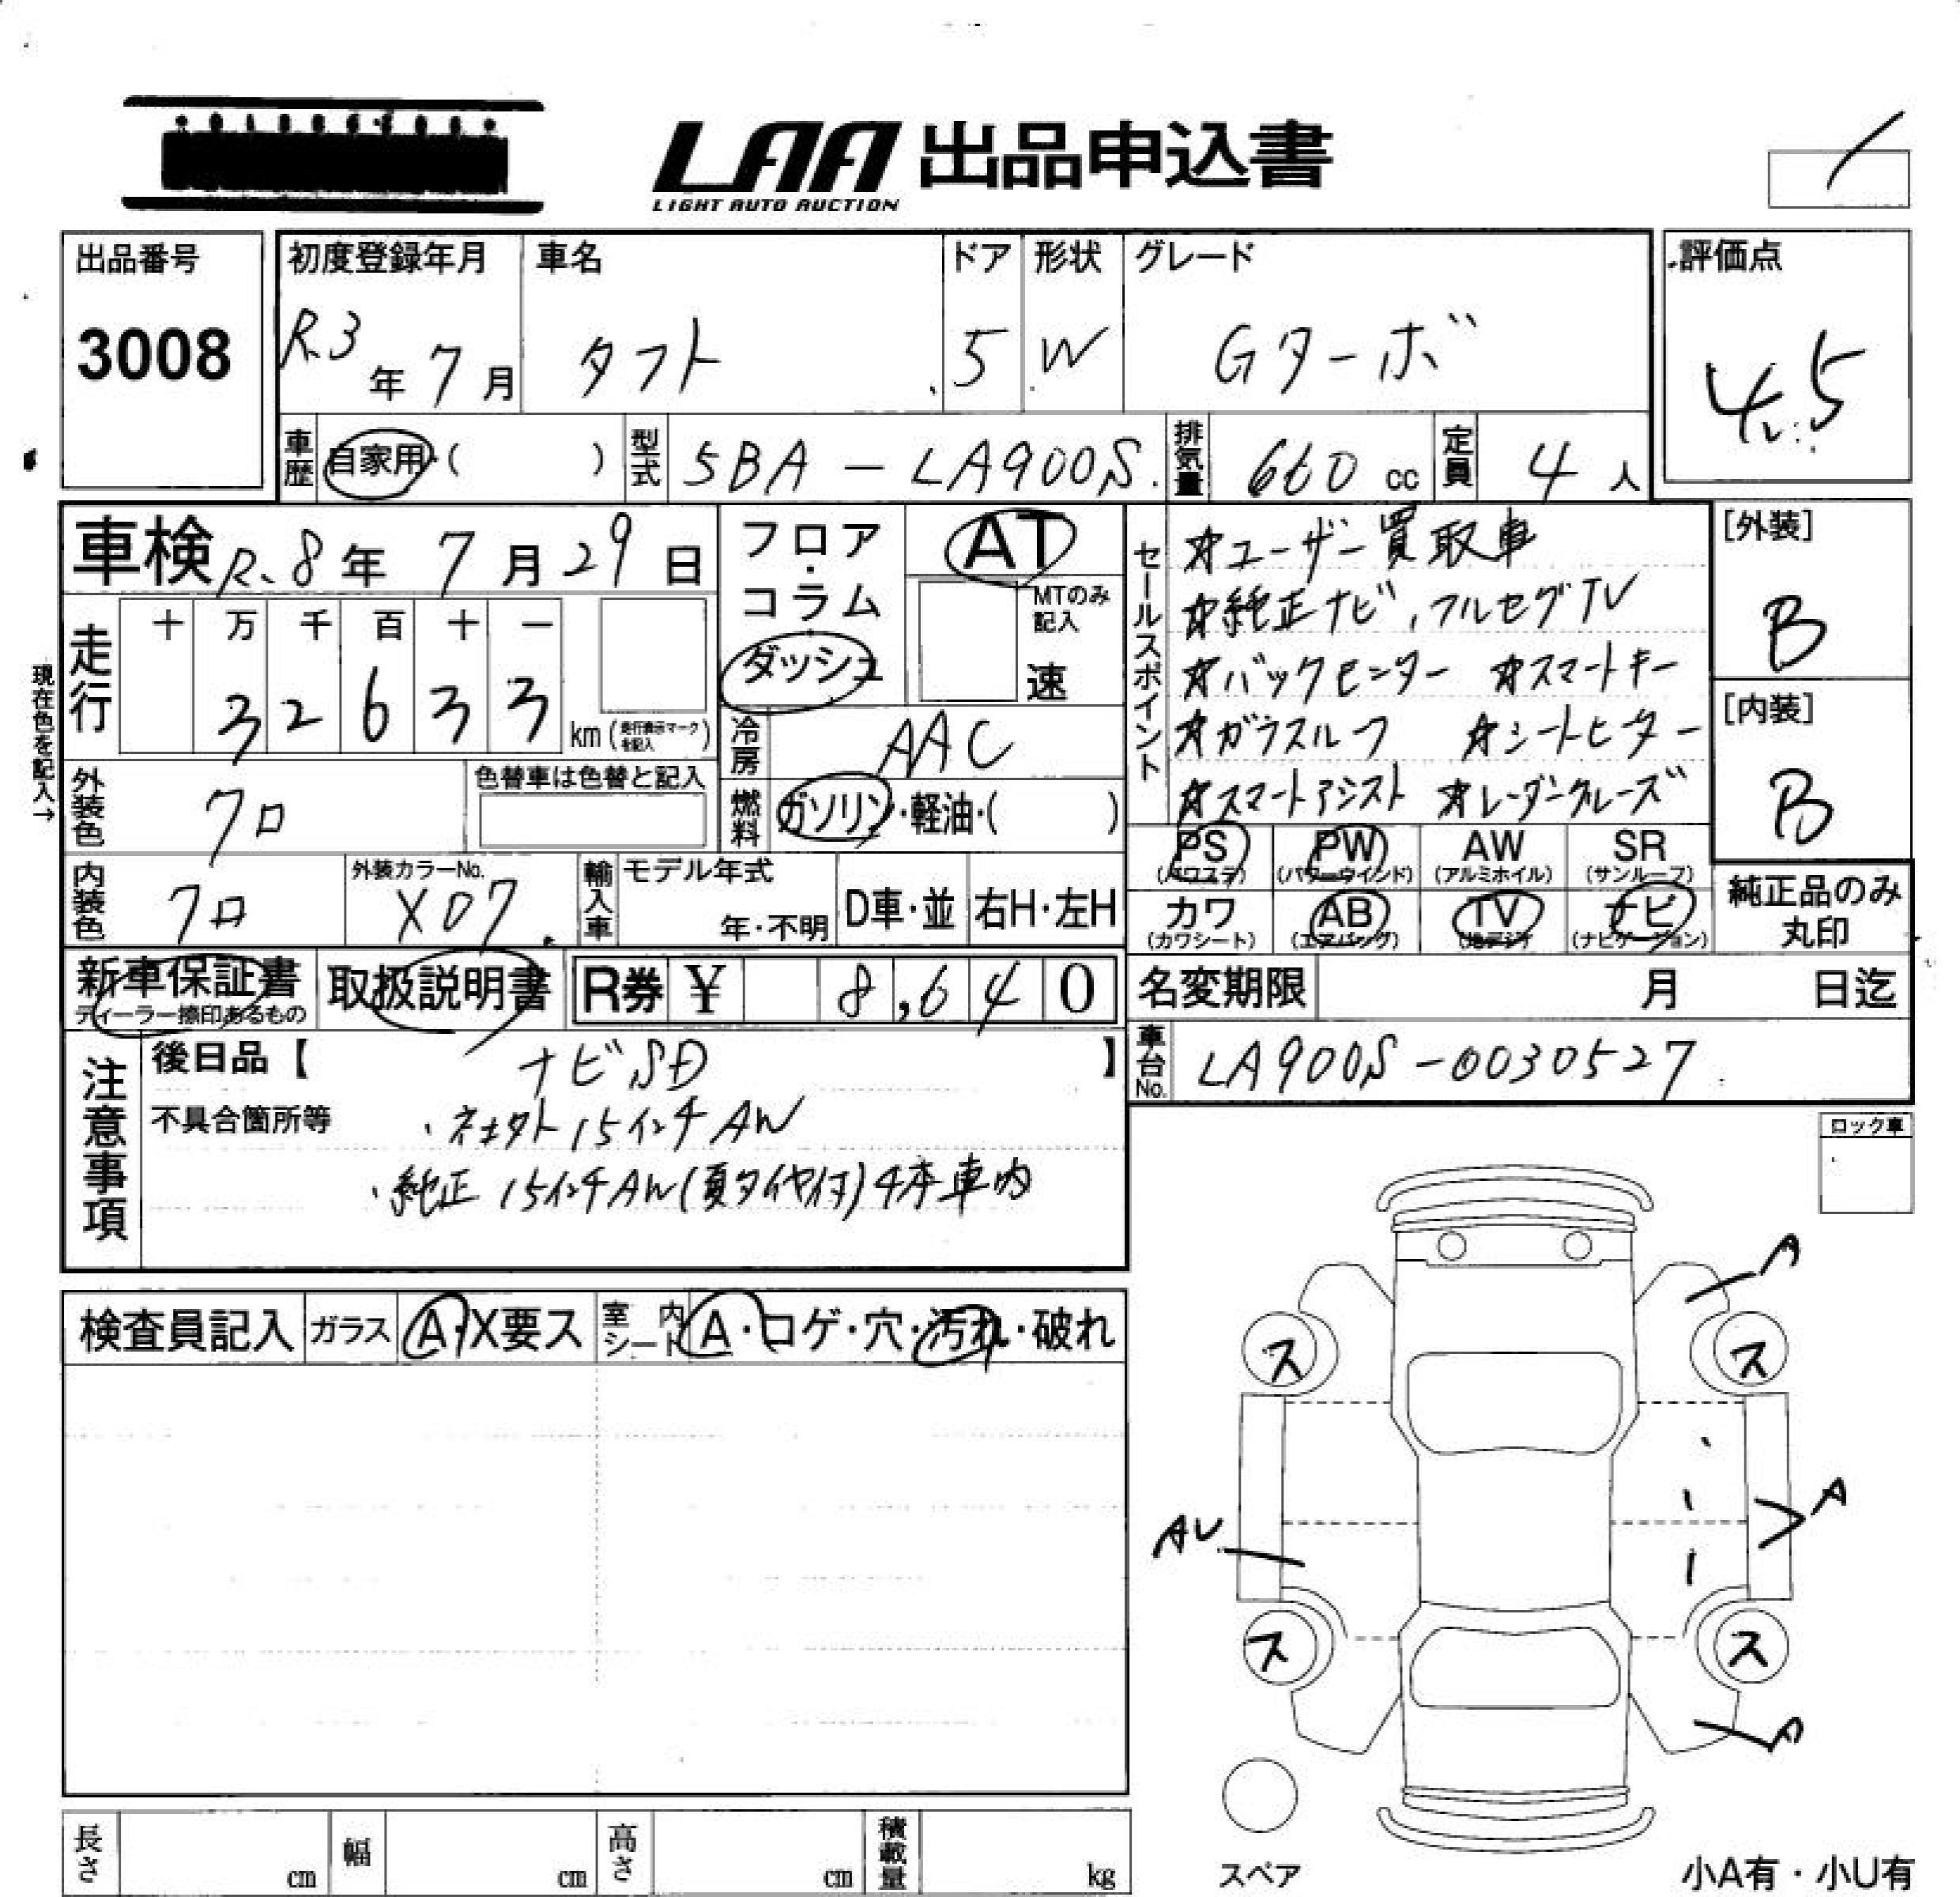 LAA 出品申込書
LIGHT AUTO AUCTION
出品番号
3008
初度登録年月
R3年7月
車名
タフト
ドア
5
形状
W
グレード
Gターボ
評価点
4.5
車歴
自家用・( )
型式
5BA-LA900S
排気量
660cc
定員
4人
車検 R.8年7月29日
フロア・コラム
ダッシュ
AT
MTのみ記入
速
セールスポイント
☆ユーザー買取車
☆純正ナビ、フルセグTV
☆バックセンター ☆スマートキー
☆ガラスルーフ ☆シートヒーター
☆スマートアシスト ☆レーダークルーズ
[外装]
B
[内装]
B
現在色を記入→
走行
十 万 千 百 十 一
3 2 6 3 3
km(走行表示マークを記入)
冷房
AAC
燃料
ガソリン・軽油・( )
外装色
クロ
色替車は色替と記入
内装色
クロ
外装カラーNo.
X07
輸入車
モデル年式
年・不明
D車・並
右H・左H
PS (パワステ)
PW (パワーウインド)
AW (アルミホイル)
SR (サンルーフ)
カワ (カワシート)
AB (エアバッグ)
TV (地デジ)
ナビ (ナビゲーション)
純正品のみ丸印
新車保証書
ディーラー捺印あるもの
取扱説明書
R券 ¥ 8,640
名変期限 月 日迄
車台No.
LA900S-0030527
注意事項
後日品【 ナビSD 】
不具合箇所等
・社外15インチAW
・純正15インチAW(夏タイヤ付)4本車内
ロック車
検査員記入
ガラス
A・X要ス
室内シート
A・コゲ・穴・汚れ・破れ
A
ス
ス
A
AU
ス
ス
A
スペア
小A有・小U有
長さ cm
幅 cm
高さ cm
積載量 kg